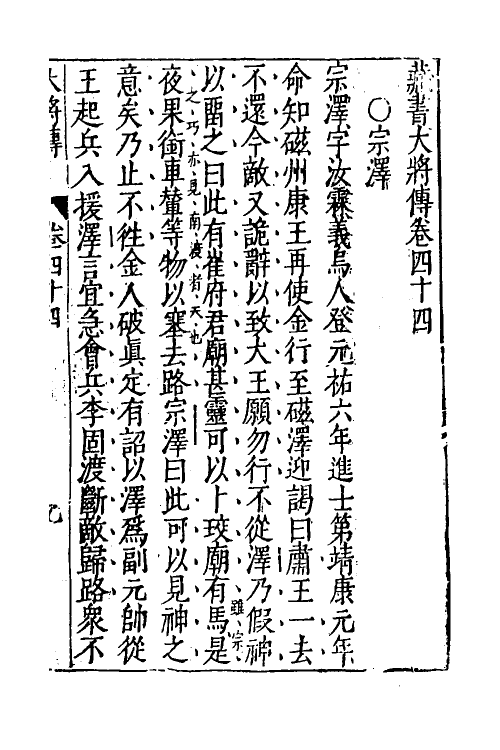 藏書大將傳卷四十四
〇宗澤
宗澤字汝霖義烏人登元祐六年進士第靖康元年
命知磁州康王再使金行至磁澤迎謁曰肅王一去
不還今敵又詭辭以致大王願勿行不從澤乃假神
雖宗
以畱之曰此有崔府君廟甚靈可以卜珓廟有馬是
之巧亦見南渡者天也
夜果銜車輦等物以塞去路宗澤曰此可以見神之
意矣乃止不徃金人破眞定有詔以澤爲副元帥從
王起兵入援澤言宜急會兵李固渡斷敵歸路衆不
大將傳
卷四十四
九